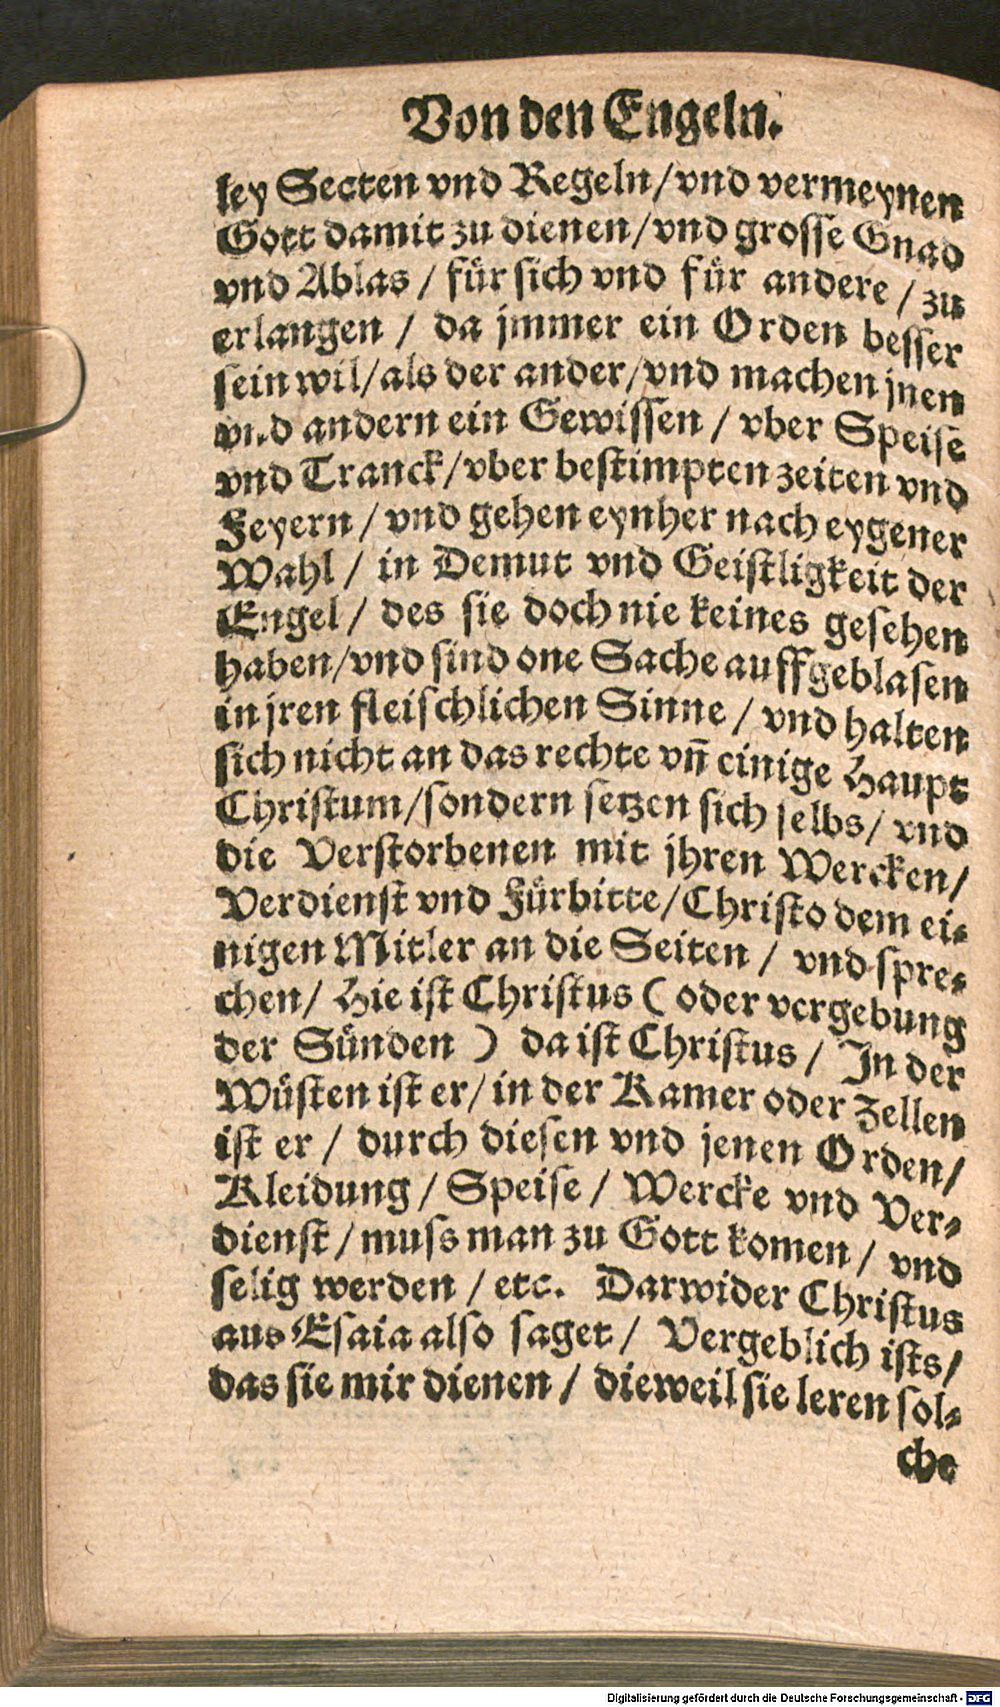 Von den Engeln.
ley Secten vnd Regeln/vnd vermeynen
Gott damit zu dienen/vnd grosse Gnad
vnd Ablas / für sich vnd für andere / zu
erlangen / da jmmer ein Orden besser
sein wil/als der ander/vnd machen jnen
vnd andern ein Gewissen / vber Speise
vnd Tranck/vber bestimpten zeiten vnd
Feyern / vnd gehen eynher nach eygener
Wahl / in Demut vnd Geistligkeit der
Engel / des sie doch nie keines gesehen
haben/vnd sind one Sache auffgeblasen
in jren fleischlichen Sinne / vnd halten
sich nicht an das rechte vñ einige Haupt
Christum/sondern setzen sich selbs/ vnd
die Verstorbenen mit jhren Wercken/
Verdienst vnd Fürbitte/Christo dem ei-
nigen Mitler an die Seiten / vnd spre-
chen/ Hie ist Christus ( oder vergebung
der Sünden ) da ist Christus / In der
Wüsten ist er/ in der Kamer oder Zellen
ist er / durch diesen vnd jenen Orden/
Kleidung / Speise / Wercke vnd Ver-
dienst / muss man zu Gott komen / vnd
selig werden / etc. Darwider Christus
aus Esaia also saget / Vergeblich ists/
das sie mir dienen / dieweil sie leren sol-
che
Digitalisierung gefördert durch die Deutsche Forschungsgemeinschaft - DFG